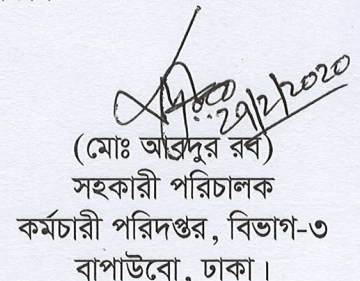 ২৭/২/২০২০
(মোঃ আবদুর রব)
সহকারী পরিচালক
কর্মচারী পরিদপ্তর, বিভাগ-৩
বাপাউবো, ঢাকা।